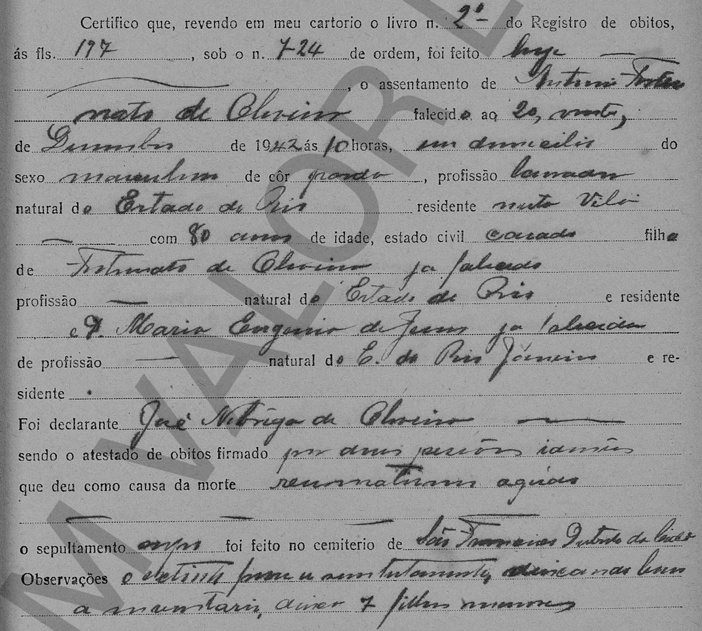 Certifico que, revendo em meu cartorio o livro n. 2º do Registro de obitos,
ás fls. 197, sob o n. 724 de ordem, foi feito hoje
, o assentamento de Antonio Fortu
nato de Oliveira falecido ao 20, vinte,
de Dezembro de 1942 ás 10 horas, em domicilio do
sexo masculino de côr parda, profissão lavrador
natural do Estado do Rio residente nesta Vila
com 80 anos de idade, estado civil casado filho
de Fortunato de Oliveira ja falecido
profissão natural do Estado do Rio e residente
e D. Maria Eugenia de Jesus ja falecida
de profissão natural do E. do Rio Janeiro e re-
sidente
Foi declarante José Nobrega de Oliveira
sendo o atestado de obitos firmado por duas pessôas
que deu como causa da morte reumatismo agudo
o sepultamento foi feito no cemiterio de São Francisco
Observações o sem testamento, bens
a inventario, deixa 7 filhos menores
M VALOR L